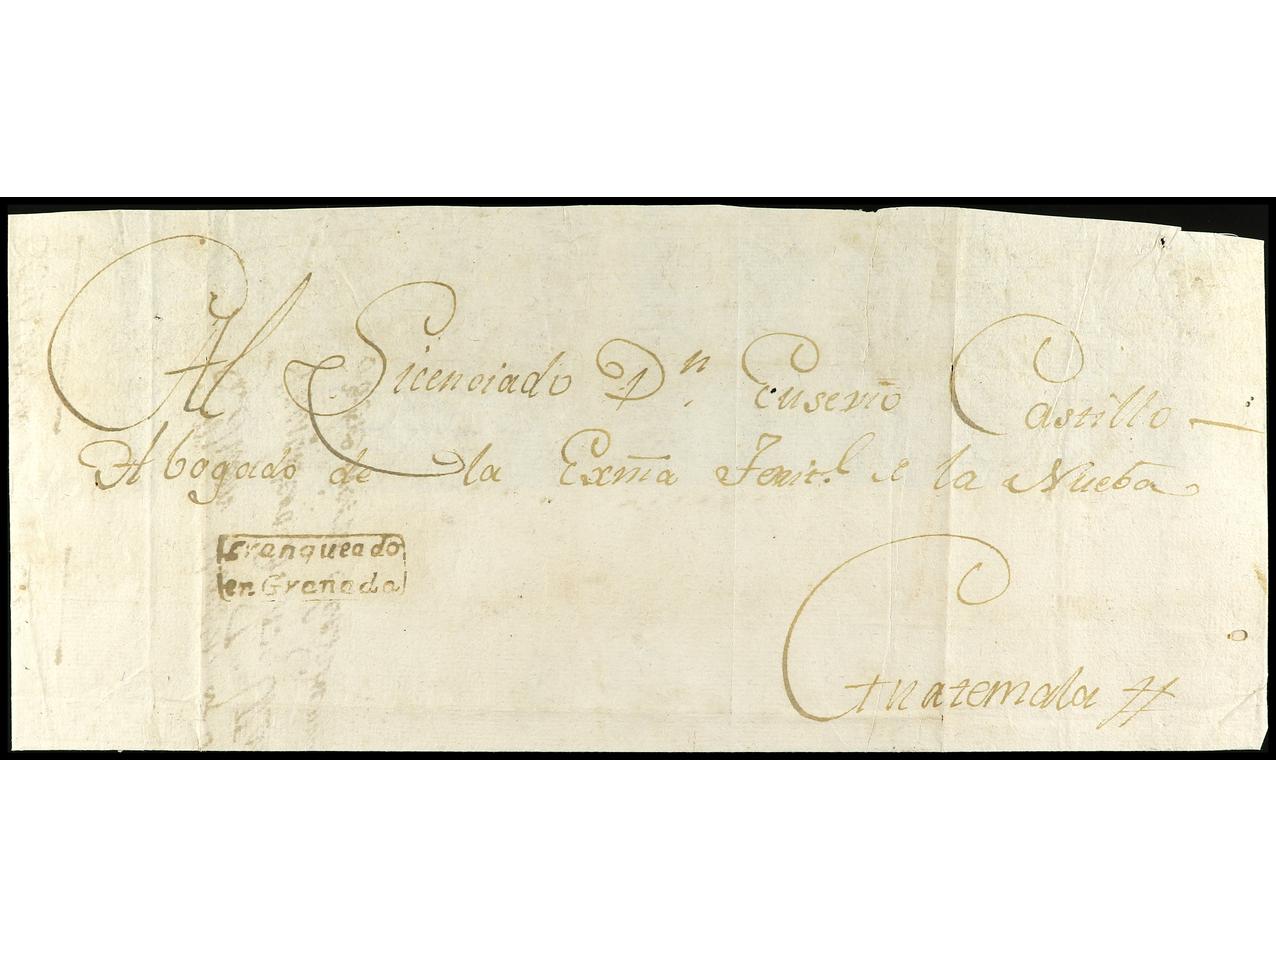 Al Licenciado Dn. Eusevio Castillo
Abogado de la Exma en la Nueba
Guatemala
Franqueado
en Granada